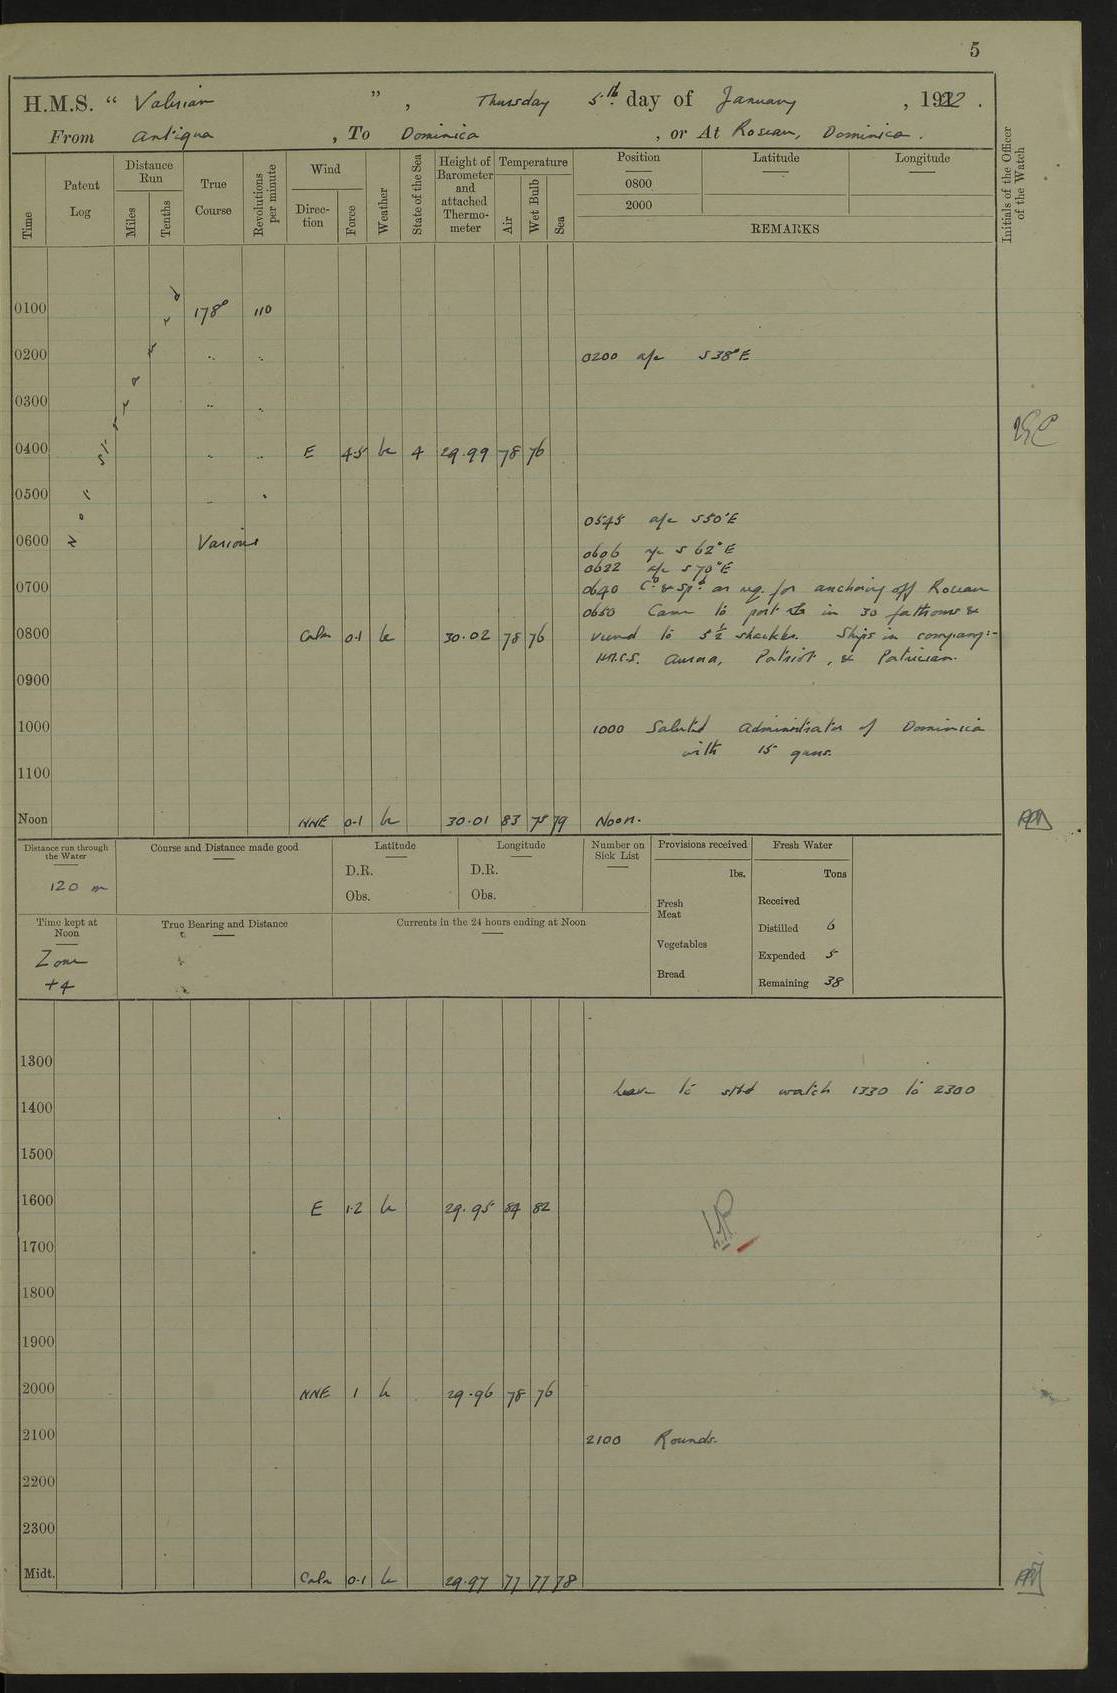 5
H.M.S. “ Valerian ” , Thursday 5th day of January , 1922 .
From Antigua , To Dominica , or At Roseau, Dominica .
Time
Patent Log
Distance Run
Miles
Tenths
True Course
Revolutions per minute
Wind
Direction
Force
Weather
State of the Sea
Height of Barometer and attached Thermometer
Temperature
Air
Wet Bulb
Sea
Position
0800
2000
Latitude
Longitude
REMARKS
Initials of the Officer of the Watch
0100 178° 110
0200 " " 0200 a/c S 38° E
0300 " "
0400 " " E 4.5 bc 4 29.99 78 76
0500 " "
0545 a/c S 50° E
0600 Various
0606 a/c S 62° E
0622 a/c S 70° E
0700 0640 Co & Spd as req. for anchoring off Roseau
0650 Came to port in 30 fathoms &
0800 Calm 0.1 bc 30.02 78 76 veered to 5½ shackles. Ships in company:-
H.M.C.S. Aurora, Patriot, & Patrician.
0900
1000 1000 Saluted Administrator of Dominica
with 15 guns.
1100
Noon NNE 0-1 bc 30.01 83 78 79 Noon.
Distance run through the Water
120 m
Course and Distance made good
Latitude
D.R.
Obs.
Longitude
D.R.
Obs.
Number on Sick List
Provisions received
lbs.
Fresh Meat
Vegetables
Bread
Fresh Water
Tons
Received
Distilled 6
Expended 5
Remaining 38
Time kept at Noon
Zone
+4
True Bearing and Distance
Currents in the 24 hours ending at Noon
1300
Leave to stbd watch 1330 to 2300
1400
1500
1600 E 1.2 bc 29.95 84 82
1700
1800
1900
2000 NNE 1 bc 29.96 78 76
2100 2100 Rounds.
2200
2300
Midt. Calm 0.1 bc 29.97 77 77 78